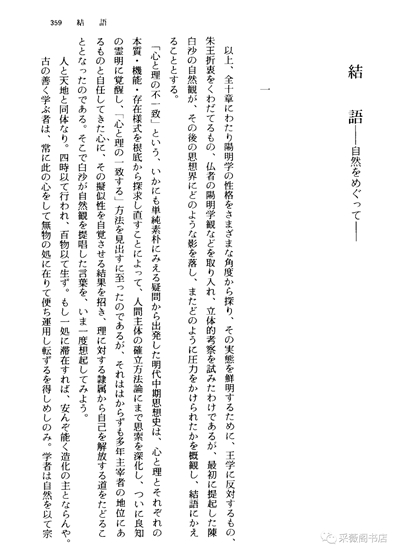 359　結　語
結　語――自然をめぐって――
一
以上、全十章にわたり陽明学の性格をさまざまな角度から探り、その実態を鮮明するために、王学に反対するもの、
朱王折衷をくわだてるもの、仏者の陽明学観などを取り入れ、立体的考察を試みたわけであるが、最初に提起した陳
白沙の自然観が、その後の思想界にどのような影を落し、またどのように圧力をかけられたかを概観し、結語にかえ
ることとする。
「心と理の不一致」という、いかにも単純素朴にみえる疑問から出発した明代中期思想史は、心と理とそれぞれの
本質・機能・存在様式を根底から探求し直すことによって、人間主体の確立方法論にまで思索を深化し、ついに良知
の霊明に覚醒し、「心と理の一致する」方法を見出すに至ったのであるが、それははからずも多年主宰者の地位にあ
るものと自任してきた心に、その擬似性を自覚させる結果を招き、理に対する隷属から自己を解放する道をたどるこ
ととなったのである。そこで白沙が自然観を提唱した言葉を、いま一度想起してみよう。
人と天地と同体なり。四時以て行われ、百物以て生ず。もし一処に滞在すれば、安んぞ能く造化の主とならんや。
古の善く学ぶ者は、常に此の心をして無物の処に在りて便ち運用し転ずるを得しめしのみ。学者は自然を以て宗
采薇阁书店